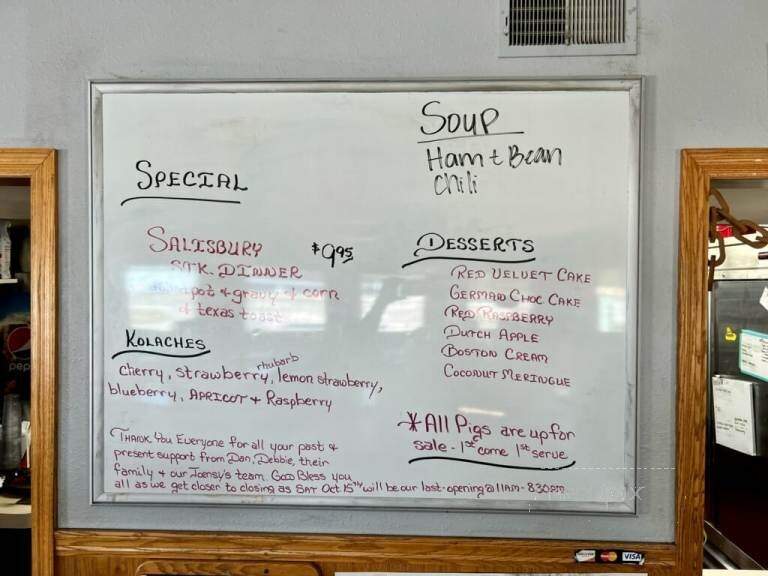 SOUP
Ham & Bean
Chili
SPECIAL
SALISBURY $9.95
STK. DINNER
pot & gravy & corn
& texas toast
DESSERTS
RED VELVET CAKE
GERMAN CHOC CAKE
RED RASPBERRY
DUTCH APPLE
BOSTON CREAM
COCONUT MERINGUE
KOLACHES
rhubarb
cherry, strawberry, lemon strawberry,
blueberry, APRICOT & Raspberry
*All Pigs are up for
sale - 1st come 1st serve
THANK YOU Everyone for all your past &
present support from Dan, Debbie, their
family & our Joensy's team. GOD Bless you
all as we get closer to closing as SAT Oct 15TH will be our last opening @ 11AM - 830PM
pepsi
VISA